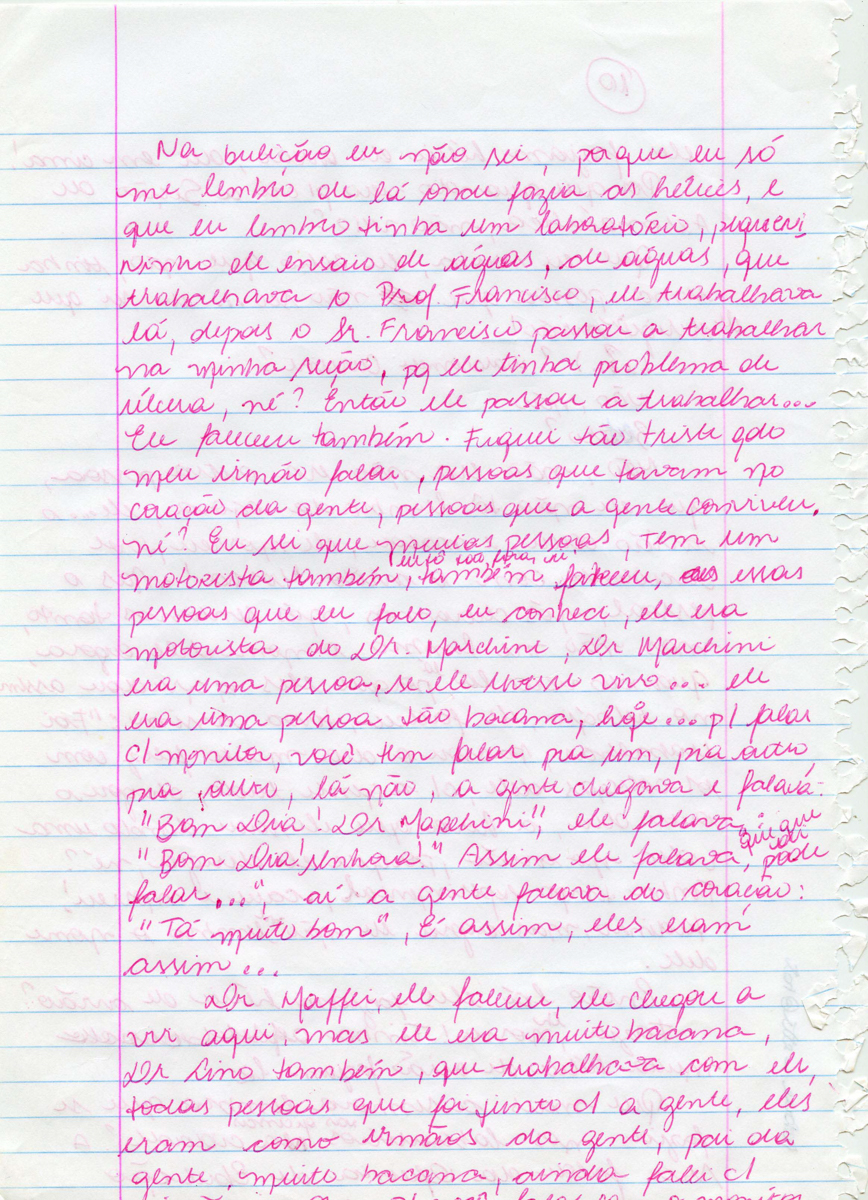 Na fundição eu não sei, porque eu só
me lembro de lá onde fazia as hélices, e
que eu lembro tinha um laboratório, pequeni
ninho de ensaio de águas, de águas, que
trabalhava o Prof. Francisco, ele trabalhava
lá, depois o Sr. Francisco passou a trabalhar
na minha seção, pq ele tinha problema de
úlcera, né? Então ele passou a trabalhar...
Ele faleceu também. Fiquei tão triste qdo
meu irmão falou, pessoas que tavam no
coração da gente, pessoas que a gente conviveu,
né? Eu sei que muitas pessoas, tem um
motorista também, também faleceu, essas
pessoas que eu falo, eu conheci, ele era
motorista do Dr. Marchini, Dr Marchini
era uma pessoa, se ele tivesse vivo... ele
era uma pessoa tão bacana, hoje... p/ falar
c/ monitor, você tem falar pra um, pra outro,
pra outro, lá não, a gente chegava e falava:
"Bom Dia! Dr Marchini", ele falava:
"Bom Dia! senhora!" Assim ele falava, que que
falar...", aí a gente falava do coração:
"Tá muito bom", É assim, eles eram
assim...
Dr Maffei, ele faleceu, ele chegou a
vir aqui, mas ele era muito bacana,
Dr Lino também, que trabalhava com ele,
todas pessoas que foi junto c/ a gente, eles
eram como irmãos da gente, pai da
gente, muito bacana, ainda falei c/